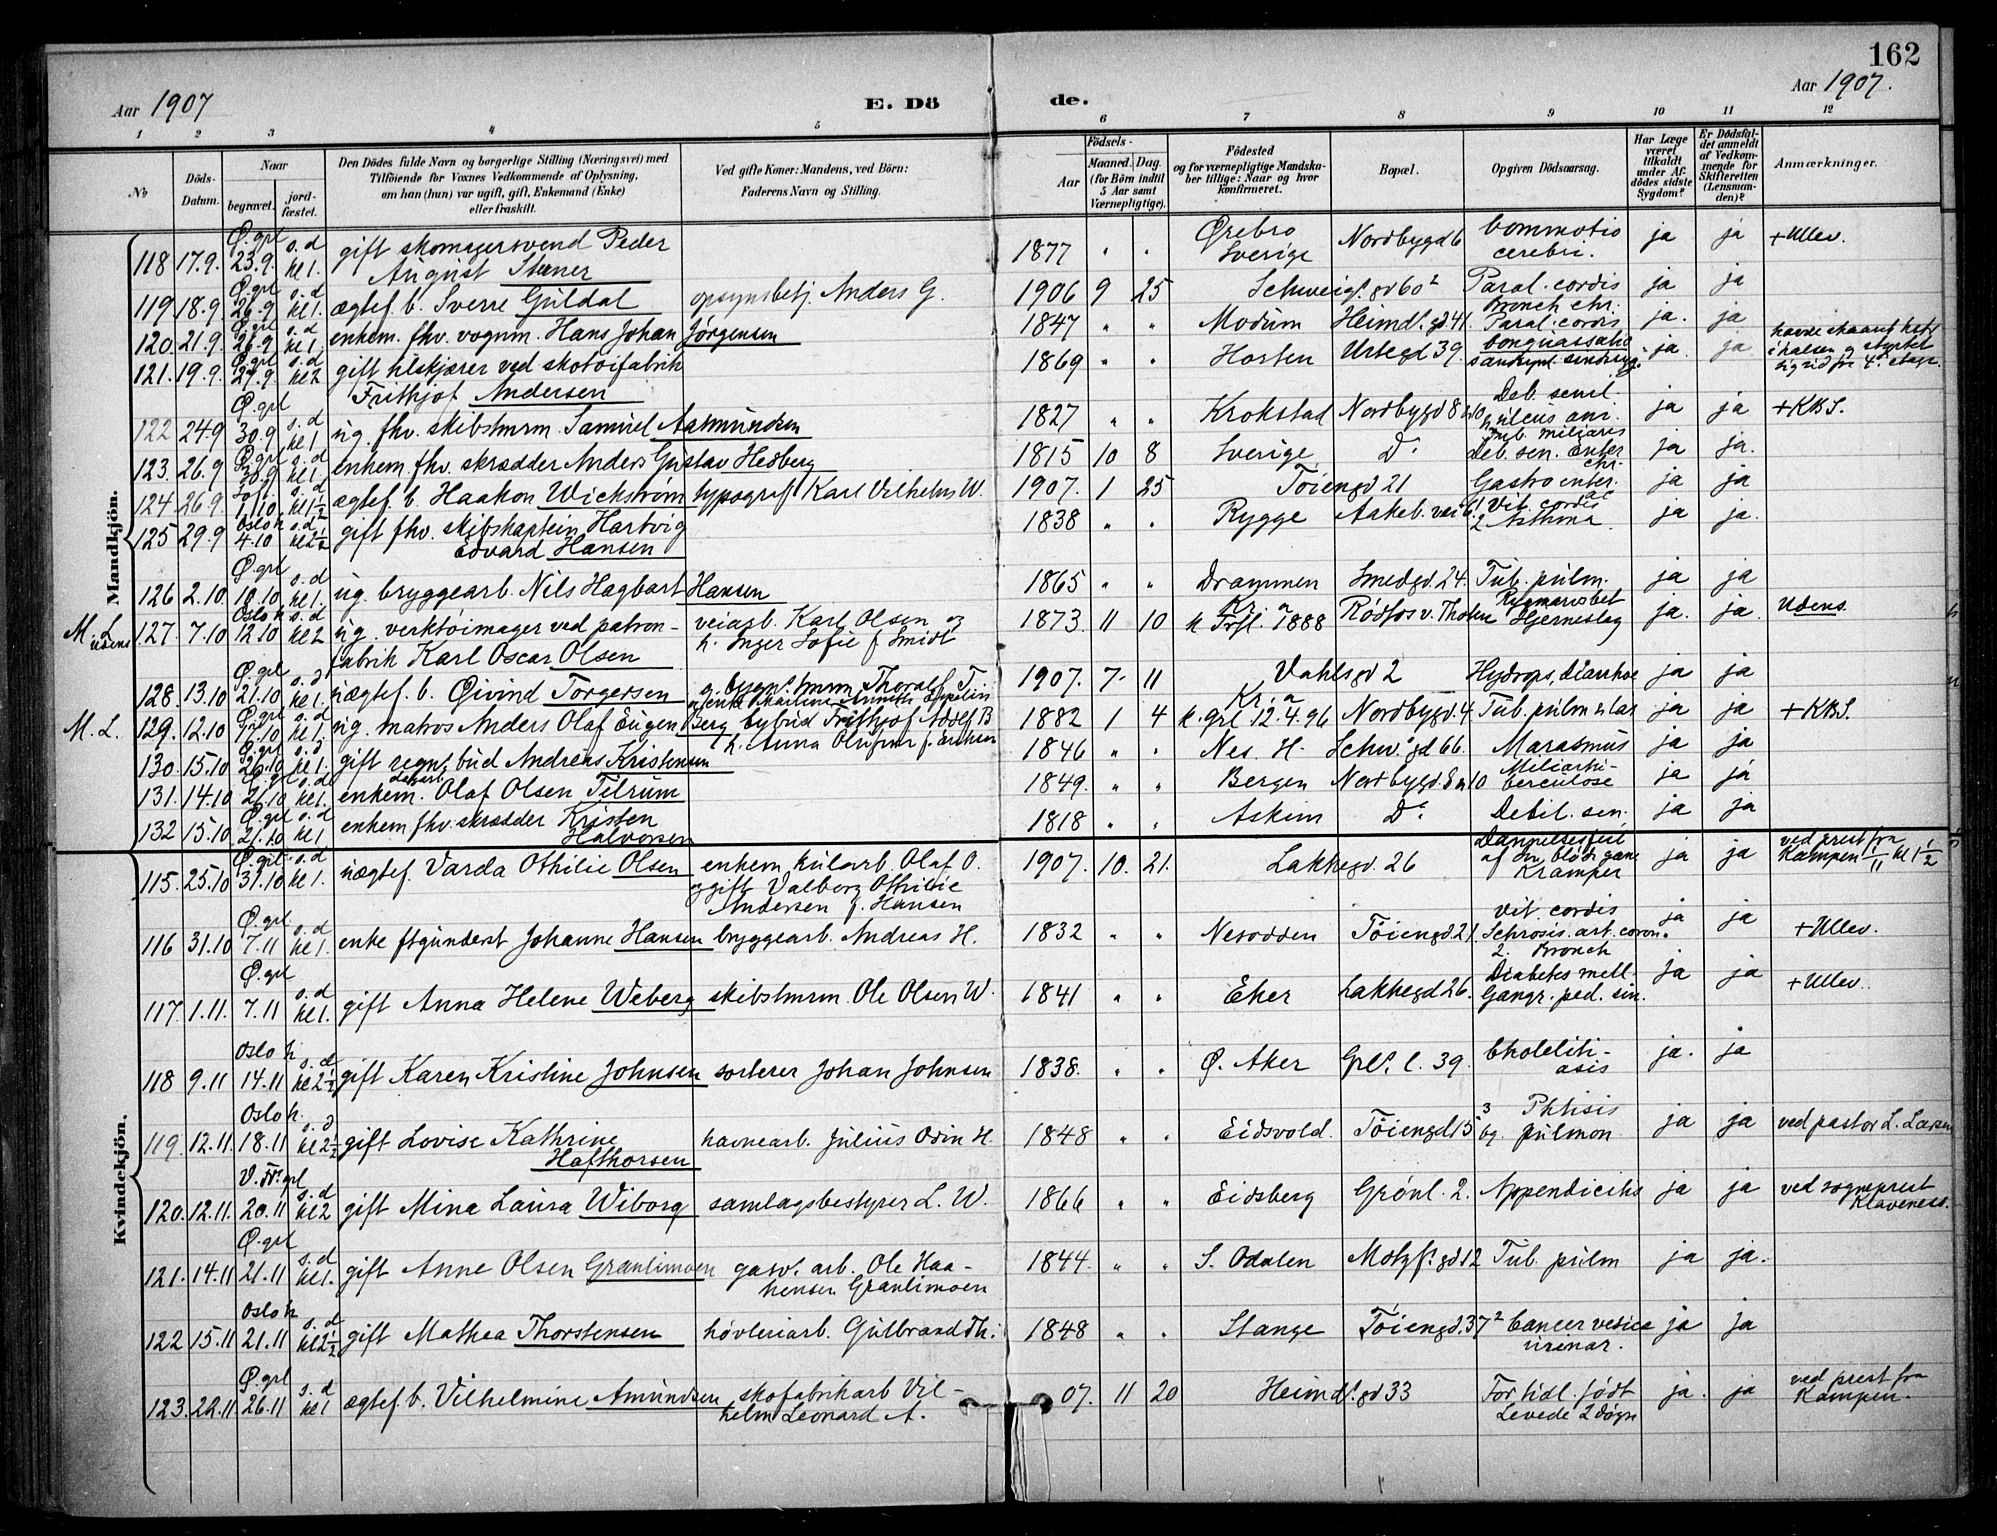 162
Aar 1907
E. Dö
de.
Aar 1907.
1 2 3 4 5 6 7 8 9 10 11 12
№
Döds-Datum.
Naar
begravet.
jord-fæstet.
Den Dödes fulde Navn og borgerlige Stilling (Næringsvei) med
Tilföiende for Voxnes Vedkommende af Oplysning,
om han (hun) var ugift, gift, Enkemand (Enke)
eller fraskilt.
Ved gifte Koner: Mandens, ved Börn:
Faderens Navn og Stilling.
Födsels-
Aar
Maaned. Dag.
(for Börn indtil
5 Aar samt
Værnepligtige).
Födested
og for værnepligtige Mandska-
ber tillige: Naar og hvor
konfirmeret.
Bopæl.
Opgiven Dödsaarsag.
Har Læge
været
tilkaldt
under Af-
dödes sidste
Sygdom?
Er Dödsfal-
det anmeldt
af Vedkom-
mende for
Skifteretten
(Lensman-
den)?
Anmærkninger.
Mandkjön.
118 17.9. Ø.grl 23.9. s.d kl 1. gift skomagersvend Peder
August Stener 1877 " " Ørebro Sverige Nordbygd 6 Commotio cerebri. ja ja + Ullev.
119 18.9 Ø.grl 26.9 s.d kl 1. ægtef. b. Sverre Guldal opsynsbetj. Anders G. 1906 9 25 Schweig. gd 60² Paral. cordis Bronch chr. ja ja
120. 21.9 Ø.grl 26.9 s.d kl 1. enkem. fhv. vognm. Hans Johan Jørgensen 1847 " " Modum Heimd. gd 41. Paral. cordis ja. ja
121. 19.9 Ø.grl 27.9 s.d kl 2 gift tilskjærer ved skotøifabrik
Frithjof Andersen 1869 " " Horten Urtegd 39. Conquassatio ja. ja havde skaaret
i halsen og styrtet
sig ud fra 4. etage.
122 24.9 Ø.grl 30.9 s.d kl 1. ug. fhv. skibstmrm. Samuel Aasmundsen 1827 " " Krokstad Nordbygd 8 Deb. senil. ulcus ani. ja ja + KBS.
123. 26.9 Ø.grl 30.9 s.d kl 1. enkem. fhv. skrædder Anders Gustav Hedberg 1815 10 8 Sverige D° Deb. sen. Enter chr. ja ja.
124 26.9 1.10 s.d kl 1½ ægtef. b Haakon Wichstrøm typograf Karl Vilhelm W. 1907. 1 25 Tøiengd 21 Gastroenter. ac ja ja
125 29.9 Oslo k 4.10 s.d. kl 2½ gift fhv. skibskaptein Hartvig
Edvard Hansen 1838 " " Rygge Aakeb. vei 6. 1 Vit. cordis
2 Asthma. ja ja.
126 2.10 Ø.grl 10.10 s.d kl 1. ug. bryggearb. Nils Hagbart Hansen 1865 " " Drammen Smedgd. 24. Tub. pulm. ja ja
M. L. udens 127. 7.10 Oslo k 12.10 s.d kl 2 ug. verktøimager ved patron-
fabrik Karl Oscar Olsen veiarb. Karl Olsen og
h. Inger Sofie f Smidt 1873 11 10 Kr.a k 1888 Rødfos v. Thoten Rygmarvsbet Hjerneslag ja. ja. Udens.
128. 13.10 Ø.grl 21.10 s.d kl 1. uægtef. b. Øivind Torgersen 1907. 7 11 Vahlsgd 2 Hydrops, Diarrhoe ja ja
M. L. 129. 12.10 Ø.grl 17.10 s.d kl 1. ug. matros Anders Olaf Eugen Berg bybud Frithjof Adolf B
h. Anna f. Eriksen 1882 1 4 Kr.a k. grl 12.4.96 Nordbygd. 4 Tub. pulm & lar ja ja + KBS.
130. 15.10 Ø.grl 26.10 s.d kl 1. gift regn. bud Andreas Kristensen 1846 " " Nes. H. Schw. gd 66. Marasmus ja ja
131. 14.10 Ø.grl 21.10 s.d kl 1. enkem. Olaf Olsen Tilrum 1849. " " Bergen Nordbygd. 8 Miliærtu-
berculose ja ja
132 15.10 Ø.grl 21.10 s.d kl 1 enkem. fhv. skrædder Kristen
Halvorsen 1818 " " Askim D° Debil. sen. ja ja
Kvindekjön.
115. 25.10 Ø.grl. 31.10 s.d kl 1. uægtef. Varda Othilie Olsen enkem kularb. Olaf O.
og gift Valborg Othilie
Andersen f. Hansen 1907. 10. 21. Lakkegd. 26 Dannelsesfeil
af bløde gane
Kramper ja ja ved prest fra
Kampen 1/11 kl 1½
116 31.10 Ø.grl. 7.11 s.d kl 1. enke ftgunderst Johanne Hansen bryggearb. Andreas H. 1832 " " Nesodden Tøiengd 21. Vit. cordis
Schrosis art. coron.
2. Bronch ja ja + Ullev.
117. 1.11. Ø.grl 7.11 s.d kl 1. gift Anna Helene Weberg skibstmrm. Ole Olsen W. 1841 " " Eker Lakkegd 26. Diabetes mell.
Gangr. ped. sin. ja ja + Ullev.
118 9.11 Oslo k 14.11 s.d kl 2½ gift Karen Kristine Johnsen sorterer Johan Johnsen 1838. " " Ø. Aker Grl. l. 39. Cholelithi-
asis ja. ja
119. 12.11 Oslo k. 18.11 s.d kl 2½ gift Lovise Kathrine
Hafthorsen havnearb. Julius Odin H. 1848 " " Eidsvold. Tøiengd 15 Phtisis
pulmon. ja ja ved pastor L. Larsen
120. 12.11. V. Fr. grl 20.11 s.d kl 2 gift Mina Laura Wiborg samlagsbestyrer L. W. 1866 " " Eidsberg Grønl. 2. Appendicitis ja ja ved sogneprest
Klaveness.
121. 14.11 Ø.grl 21.11 s.d kl 1. gift Anne Olsen Granlimoen gasv. arb. Ole Haa-
kensen Granlimoen 1844. " " S. Odalen Motzf. gd 12 Tub. pulm ja ja.
122 15.11 Oslo k 21.11 s.d kl 2½ gift Mathea Thorstensen høvleriarb. Gulbrand Th. 1848 " " Stange Tøiengd. 37² Cancer vesicæ
urinar. ja ja
123. 22.11 Ø.grl 26.11 s.d kl 1 ægtef. b. Vilhelmine Amundsen skofabrikarb Vil-
helm Leonard A. 07. 11 20 Heimd. gd 33 For tidl. født
Levede 2 døgn ja. ja ved prest fra
Kampen.